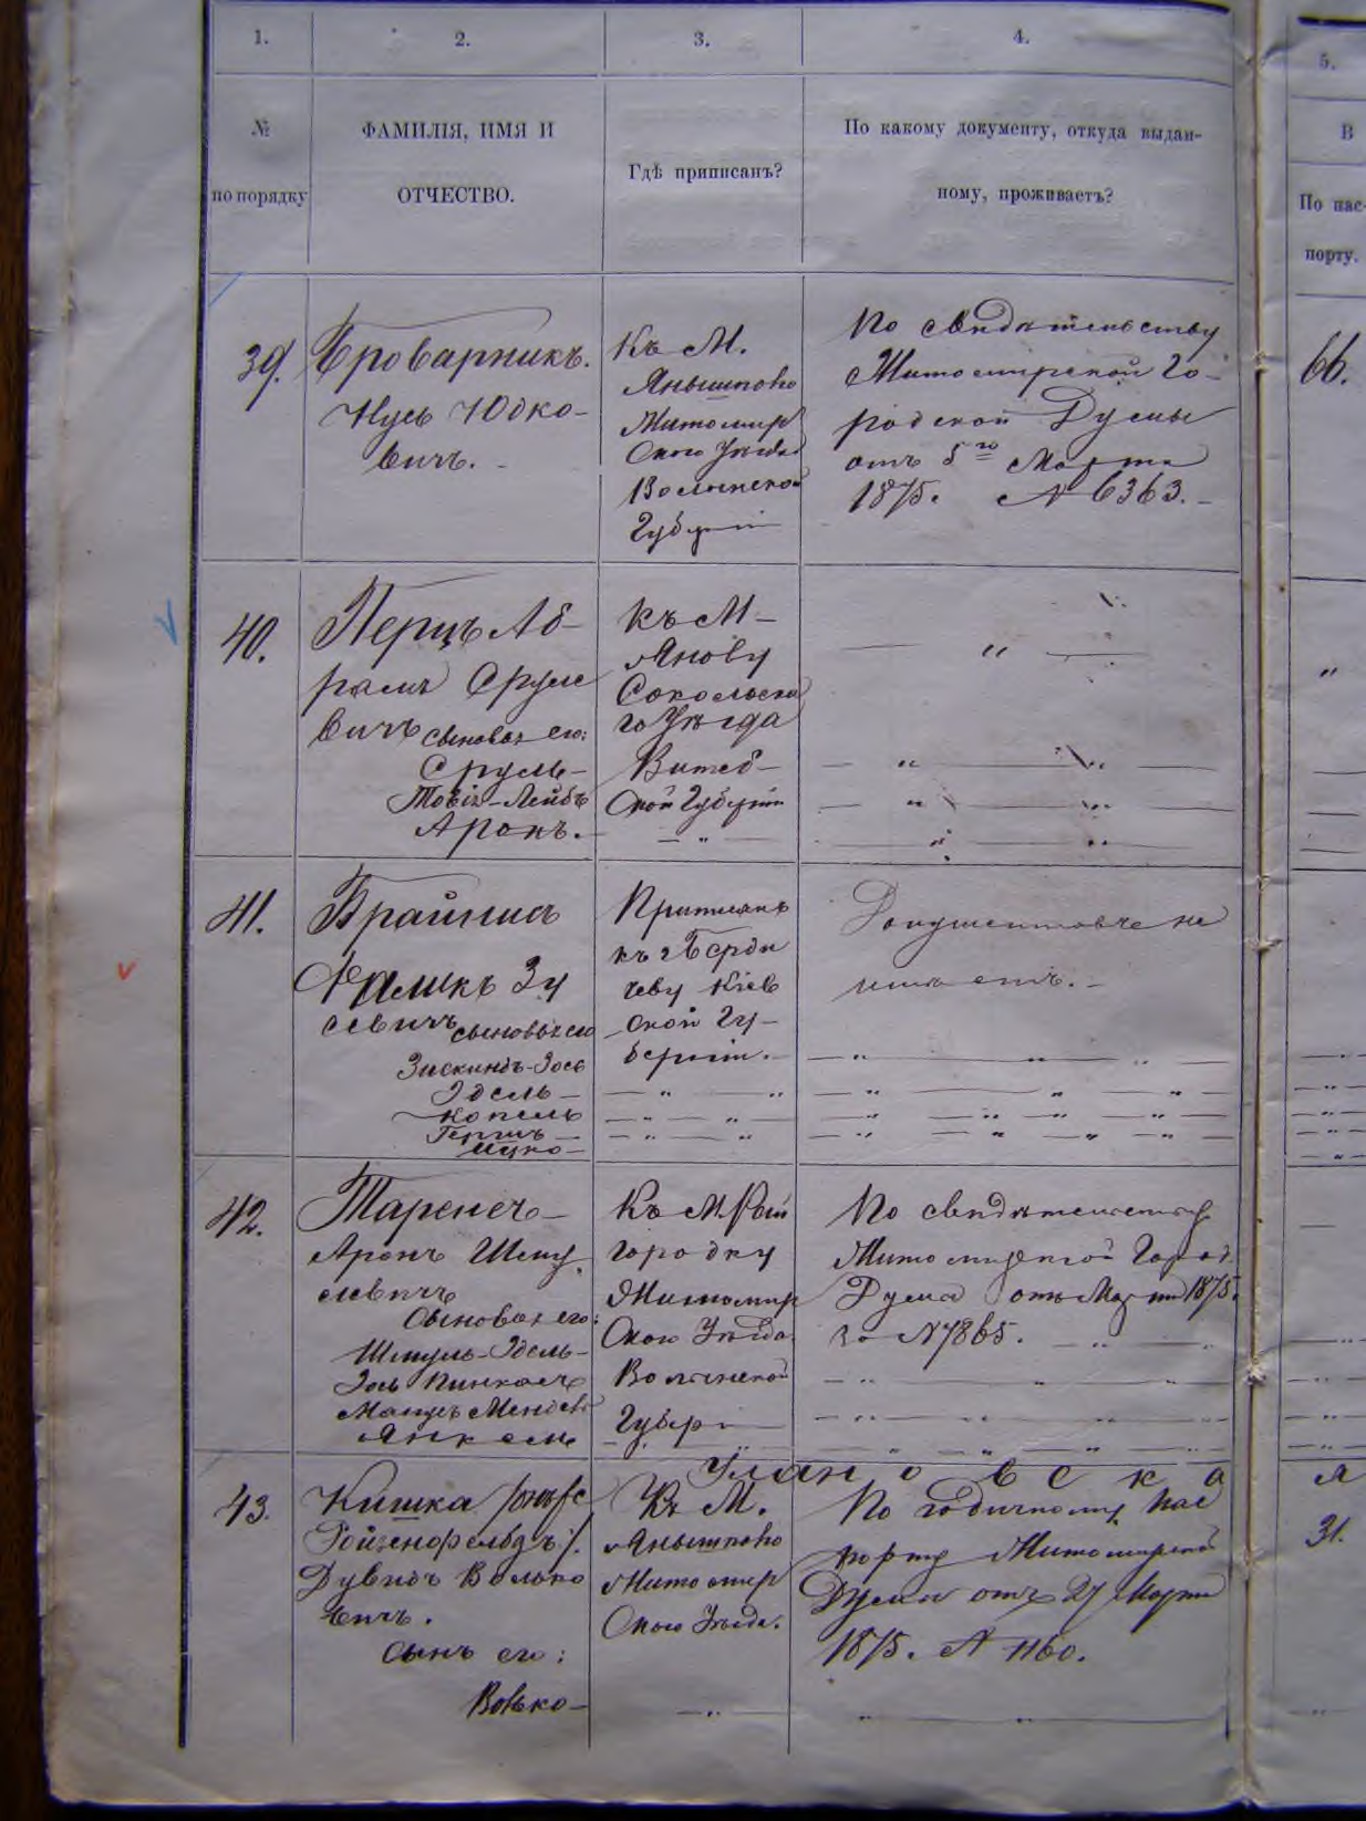 1.
2.
3.
4.
5.
№
по порядку
ФАМИЛІЯ, ИМЯ И
ОТЧЕСТВО.
Гдѣ приписанъ?
По какому документу, откуда выдан-
ному, проживаетъ?
В
По пас-
порту.
39.
Броварникъ.
Нусь Юдко-
вичъ.
Къ М.
Янышполю
Житомир
скаго Уѣзда
Волынской
Губерніи
По свидѣтельству
Житомирской Го-
родской Думы
отъ 5го Марта
1875. № 6363.
66.
40.
Перцъ Аб-
рамъ Сруле
вичъ сыновья его:
Сруль-
Товія-Лейбъ
Аронъ.
къ М-
Янову
Сокольска
го Уѣзда
Витеб-
ской Губерніи
— " —
"
41.
Файвишъ
Зу
севичъ сыновья его
Зискиндъ-Зось
Эдель-
Копель
Гершъ-
Ицко-
Приписанъ
къ г Берди
чеву Кіев
ской Гу-
берніи.
Документовъ не
имѣетъ.
42.
Аронъ Шму
левичъ
Сыновья его:
Шмуль-Эдель-
Зось Пинхасъ
Янкель
Къ М.
городку
Житомир
скаго Уѣзда
Волынской
Губерніи
По свидѣтельству
Житомирской Город.
Думы отъ Марта 1875.
за № 7865.
Улановска
Я
43.
Кишка
Ройзенфельдъ
Дувидъ Волько
вичъ.
сынъ его:
Волько-
Къ М.
Янышполю
Житомир
скаго Уѣзда.
По годичному пас
порту Житомирской
Думы отъ 27 Марта
1875. № 1160.
31.